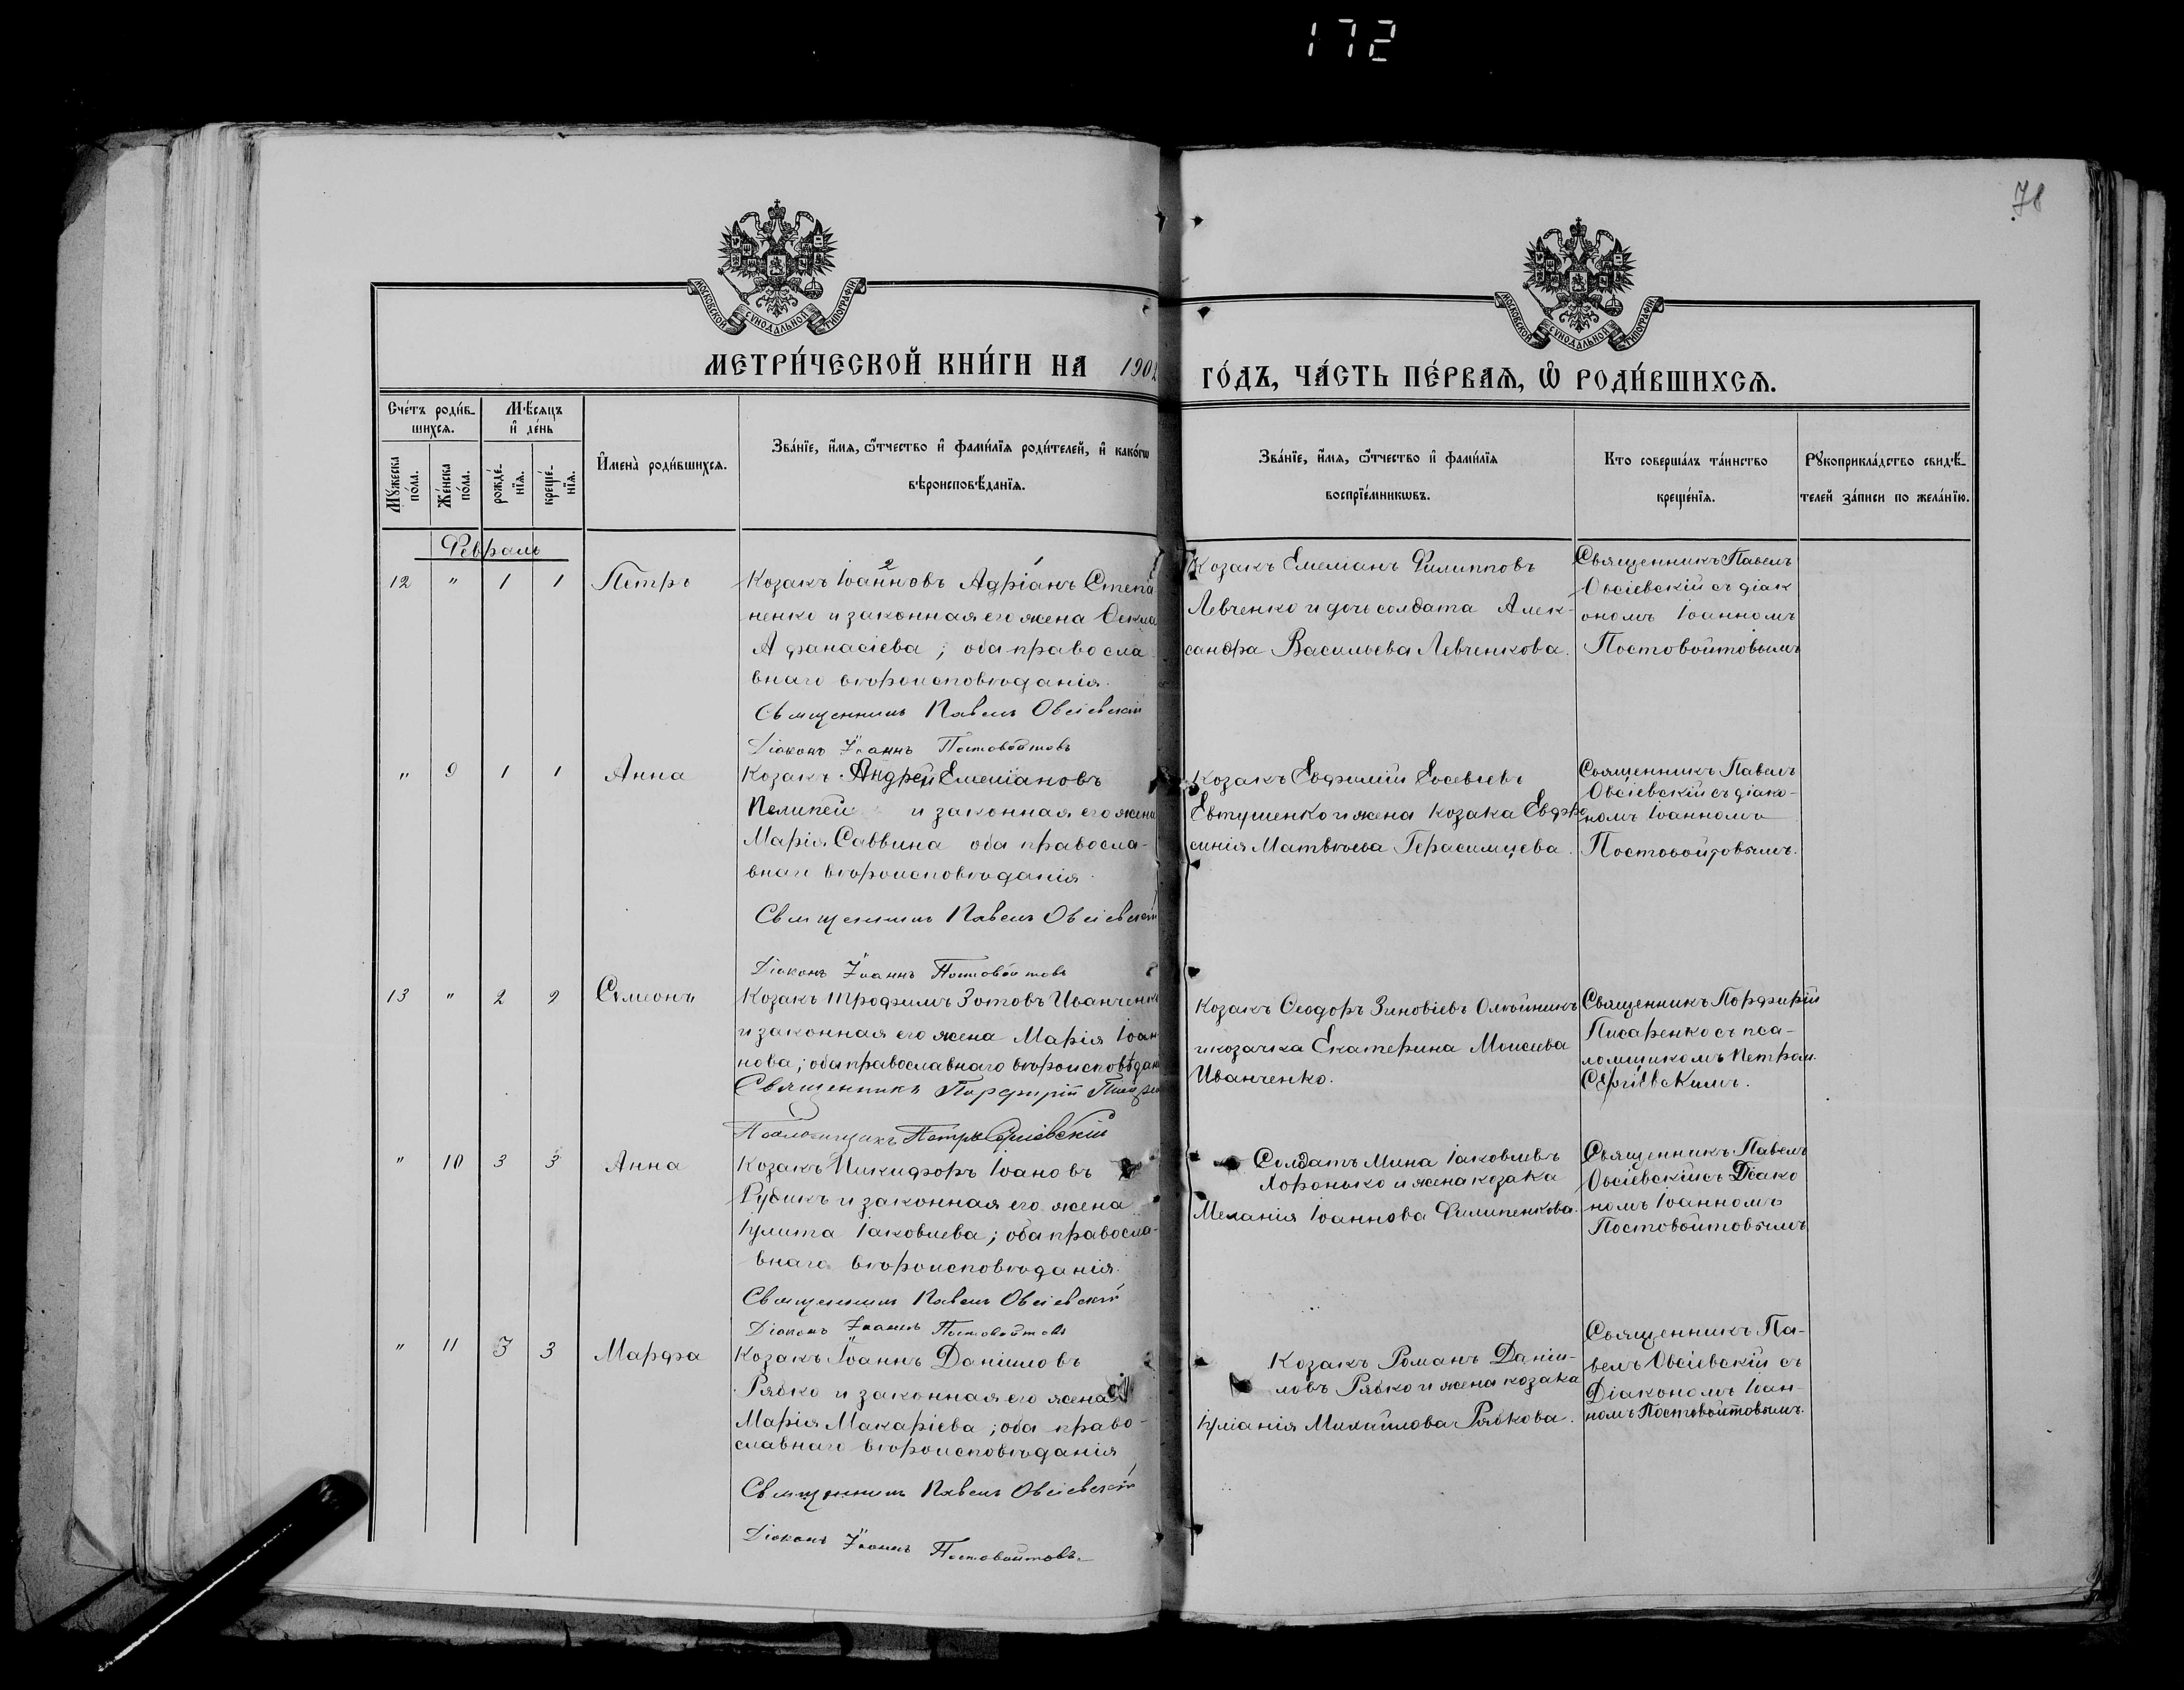 172
78
МОСКОВСКОЙ СѴНОДАЛЬНОЙ ТИПОГРАФІИ
МОСКОВСКОЙ СѴНОДАЛЬНОЙ ТИПОГРАФІИ
МЕТРИ́ЧЕСКОЙ КНИ́ГИ НА 1902
ГО́ДЪ, ЧА́СТЬ ПЕ́РВАѦ, Ѽ РОДИ́ВШИХСѦ.
Сче́тъ роди́в-
шихсѧ.
Мꙋ́жеска
по́ла.
Же́нска
по́ла.
Мѣ́сѧцъ
и҆ де́нь
рожде́-
нїѧ.
креще́-
нїѧ.
И҆мена̀ роди́вшихсѧ.
Зва́нїе, и҆́мѧ, ѻ҆́тчество и҆ фами́лїѧ роди́телей, и҆ како́гѡ
вѣроисповѣ́данїѧ.
Зва́нїе, и҆́мѧ, ѻ҆́тчество и҆ фами́лїѧ
воспрїе́мникѡвъ.
Кто соверша́лъ та́инство
креще́нїѧ.
Рꙋкоприкла́дство свидѣ́-
телей за́писи по жела́нїю.
Февраль
12 " 1 1 Петръ
2 1
Козакъ Іоанновъ Адріанъ Степа
ненко и законная его жена Ѳекла
Афанасіева; оба правосла
внаго вѣроисповѣданія.
Священникъ Павелъ Овсіевскій
Діаконъ Іоаннъ Постовойтовъ
Козакъ Емеліанъ Филипповъ
Левченко и дочь солдата Алек-
сандра Васильева Левченкова.
Священникъ Павелъ
Овсіевскій съ діак
ономъ Іоанномъ
Постовойтовымъ
" 9 1 1 Анна
Козакъ Андрей Емеліановъ
Пелипей и законная его жена
Марія Саввина оба правосла-
внаго вѣроисповѣданія.
Священникъ Павелъ Овсіевскій
Діаконъ Іоаннъ Постовойтовъ
Козакъ Евфимій Евсевіевъ
Евтушенко и жена козака Евфро
синія Матвѣева Герасимцева.
Священникъ Павелъ
Овсіевскій съ діако-
номъ Іоанномъ
Постовойтовымъ.
13 " 2 2 Симеонъ
Козакъ Трофимъ Зотовъ Иванченко
и законная его жена Марія Іоан
нова; оба православнаго вѣроисповѣдан
Священникъ Порфирій
Псаломщикъ Петръ Сергіевскій
Козакъ Ѳеодоръ Зиновіевъ Олейникъ
и козачка Екатерина Моисеева
Иванченко.
Священникъ Порфирій
Писаренко съ пса-
ломщикомъ Петромъ
Сергіевскимъ.
" 10 3 3 Анна
Козакъ Никифоръ Іоановъ
Рубикъ и законная его жена
Іулита Іаковлева; оба правосла-
внаго вѣроисповѣданія.
Священникъ Павелъ Овсіевскій
Діаконъ Іоаннъ Постовойтовъ
Солдатъ Мина Іаковлевъ
Хоронько и жена козака
Меланія Іоаннова Филипенкова.
Священникъ Павелъ
Овсіевскій съ Діако
номъ Іоанномъ
Постовойтовымъ
" 11 3 3 Марфа
Козакъ Іоаннъ Даніиловъ
Рябко и законная его жена
Марія Макаріева; оба право-
славнаго вѣроисповѣданія
Священникъ Павелъ Овсіевскій
Діаконъ Іоаннъ Постовойтовъ
Козакъ Романъ Даніи-
ловъ Рябко и жена козака
Іуліанія Михайлова Рябкова.
Священникъ Па-
велъ Овсіевскій съ
Діакономъ Іоан-
номъ Постовойтовымъ.